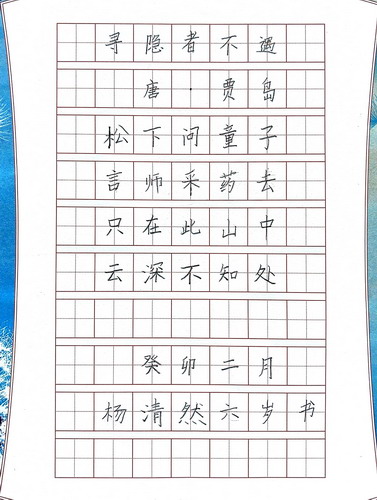 寻隐者不遇
唐·贾岛
松下问童子
言师采药去
只在此山中
云深不知处
癸卯二月
杨清然六岁书